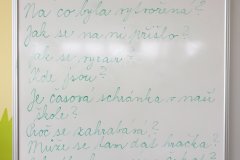 Na co byla vytvořena?
Jak se na ni přišlo?
Jak se
Kde jsou?
Je časová schránka v naší
škole?
Proč se zahrabání?
Může se tam dát hračka?